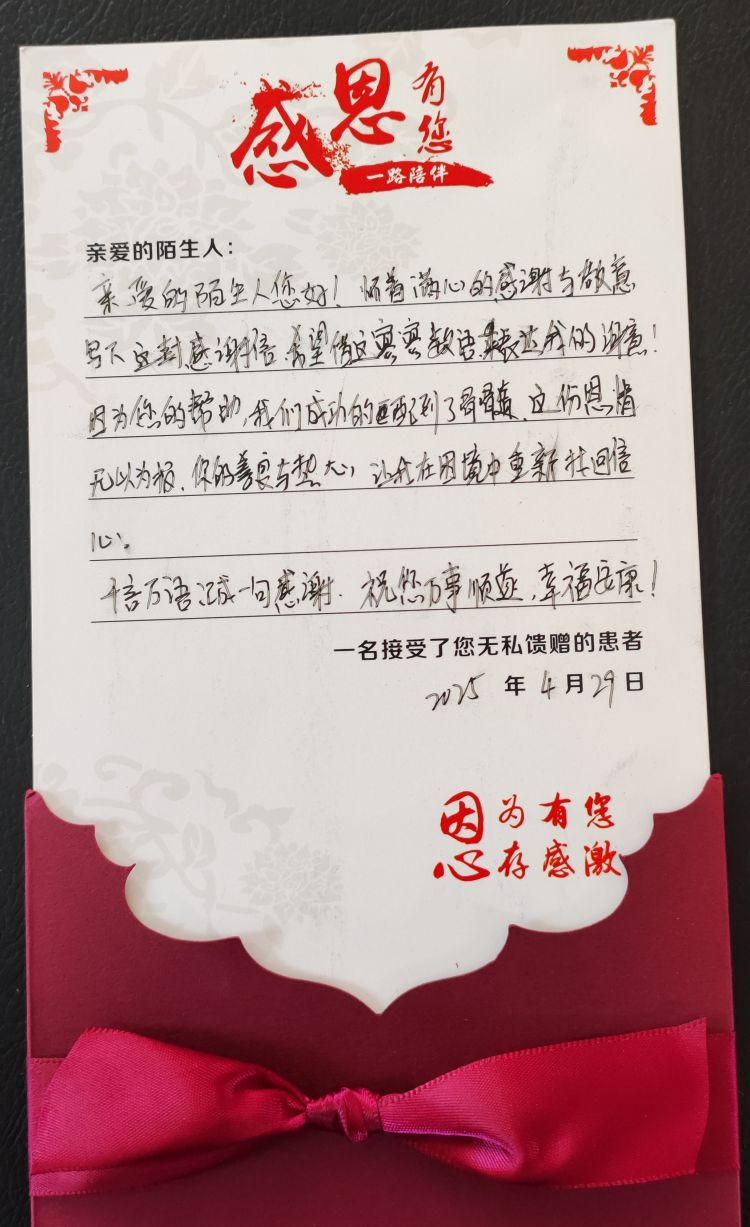 感恩有您
一路陪伴
亲爱的陌生人：
亲爱的陌生人您好！怀着满心的感谢与敬意
写下这封感谢信，希望借这寥寥数语，表达我的谢意！
因为您的帮助，我们成功的匹配到了骨髓，这份恩情
无以为报，你的善良与热心，让我在困境中重新找回信
心。
千言万语汇成一句感谢，祝您万事顺遂，幸福安康！
一名接受了您无私馈赠的患者
2025 年 4 月 29 日
因为有您
心存感激